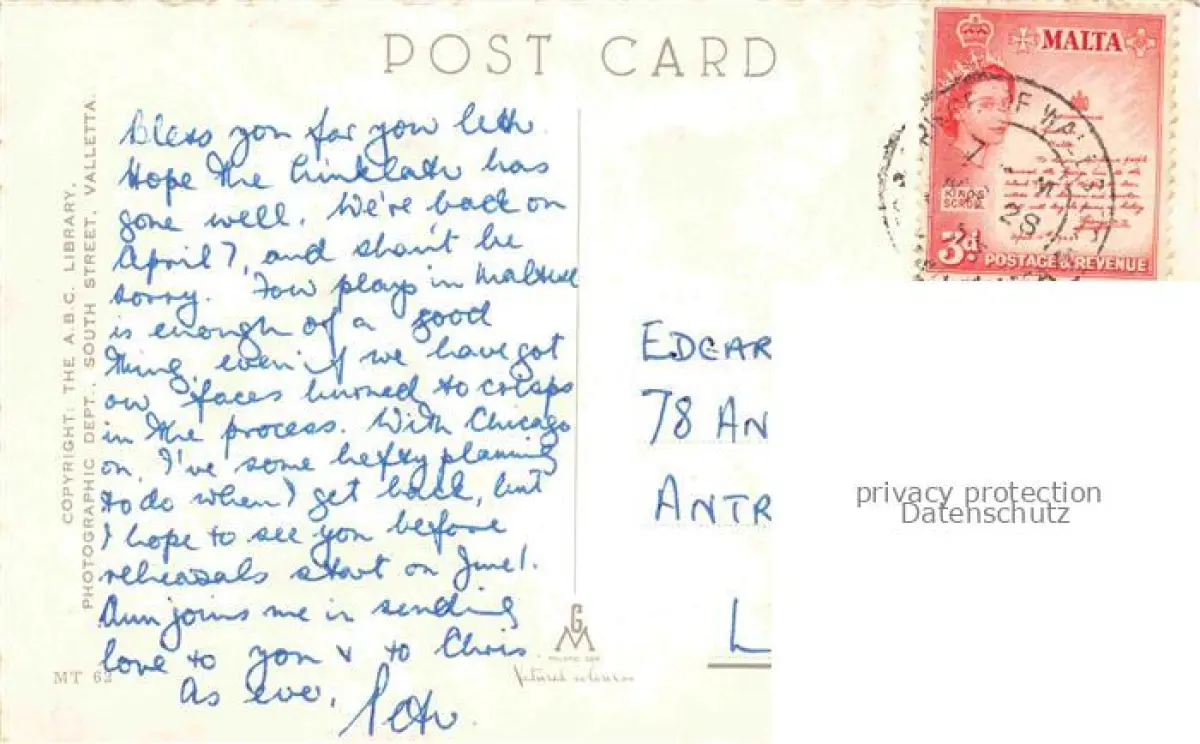 POST CARD
COPYRIGHT: THE A.B.C. LIBRARY,
PHOTOGRAPHIC DEPT., SOUTH STREET, VALLETTA.
Bless you for you lettr.
Hope the has
gone well. We're back on
April 7, and shan't be
sorry. Four plays in
is enough of a good
thing, even if we have got
our faces burned to crisps
in the process. With Chicago
on, I've some hefty planning
to do when I get back, but
I hope to see you before
rehearsals start on June 1.
Ann joins me in sending
love to you & to Chris
As ever,
Peter.
MT 62
MALTA
KING'S
SCROLL
3d POSTAGE & REVENUE
OF WALES
28
EDGAR
78 AN
ANTR
L
privacy protection
Datenschutz